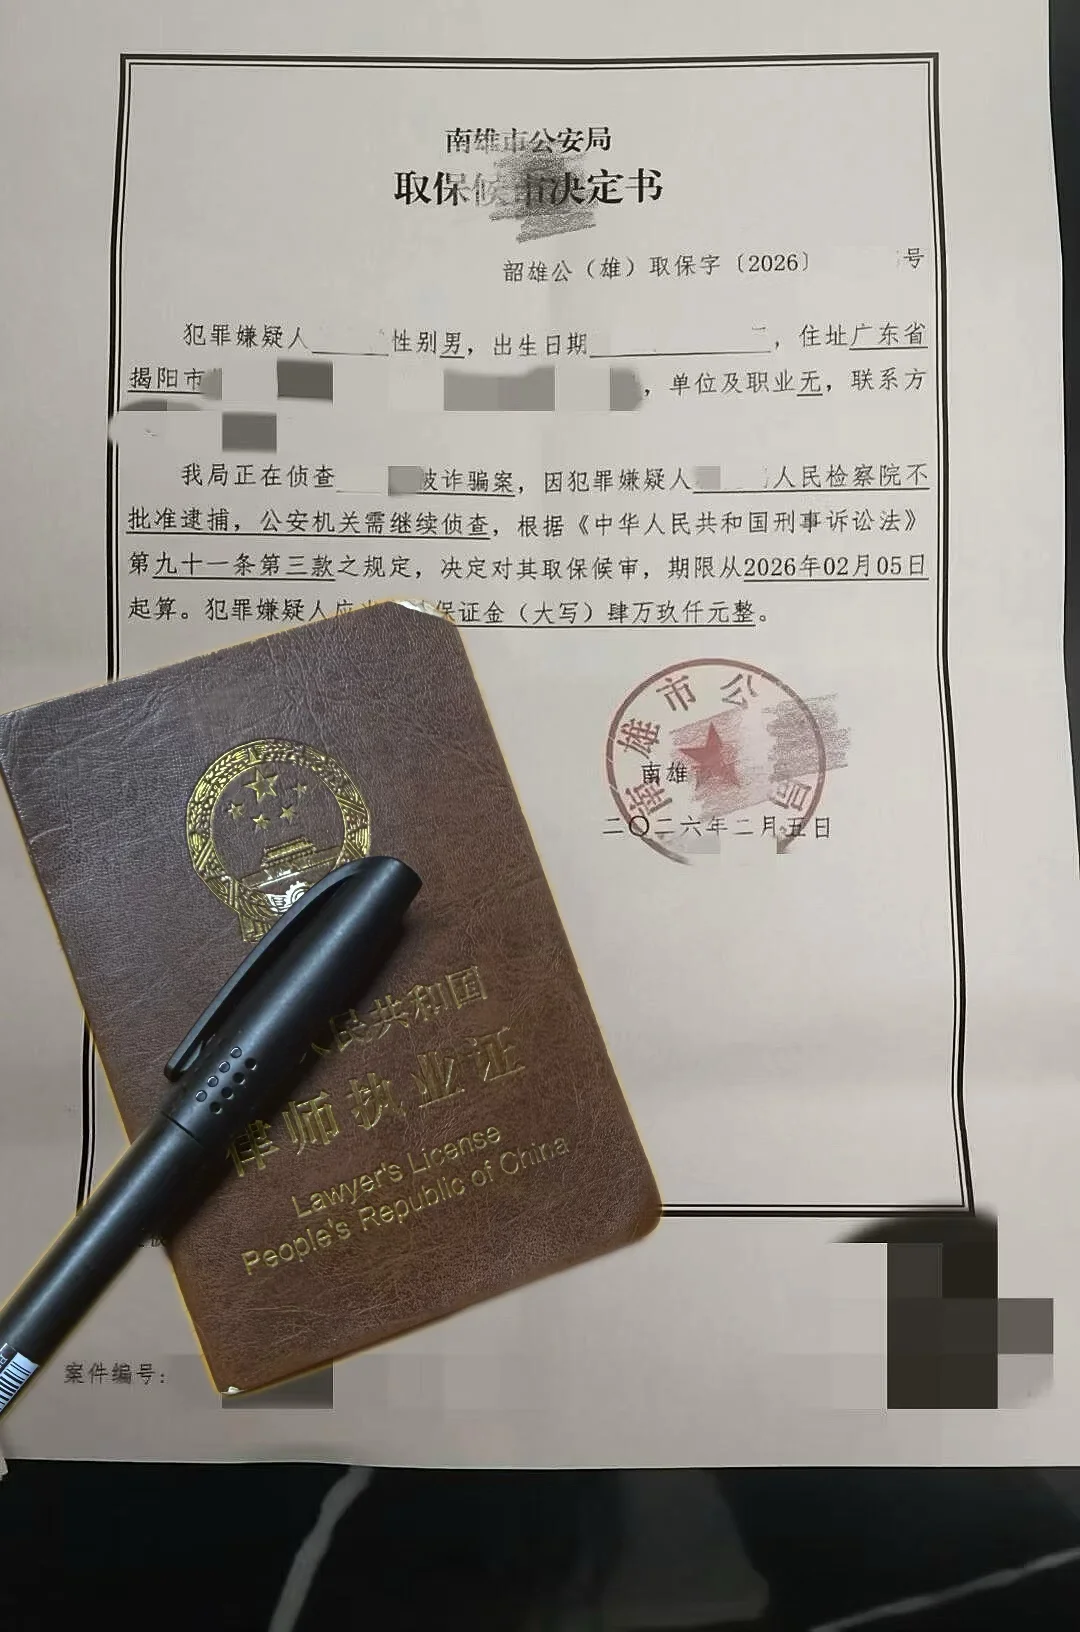 南雄市公安局
取保候审决定书
韶雄公（雄）取保字〔2026〕 号
犯罪嫌疑人 性别男，出生日期 ，住址广东省
揭阳市 ，单位及职业无，联系方
我局正在侦查 被诈骗案，因犯罪嫌疑人 人民检察院不
批准逮捕，公安机关需继续侦查，根据《中华人民共和国刑事诉讼法》
第九十一条第三款之规定，决定对其取保候审，期限从2026年02月05日
起算。犯罪嫌疑人应 保证金（大写）肆万玖仟元整。
南雄市公 局
南雄
二〇二六年二月五日
人民共和国
律师执业证
Lawyer's License
People's Republic of China
案件编号：